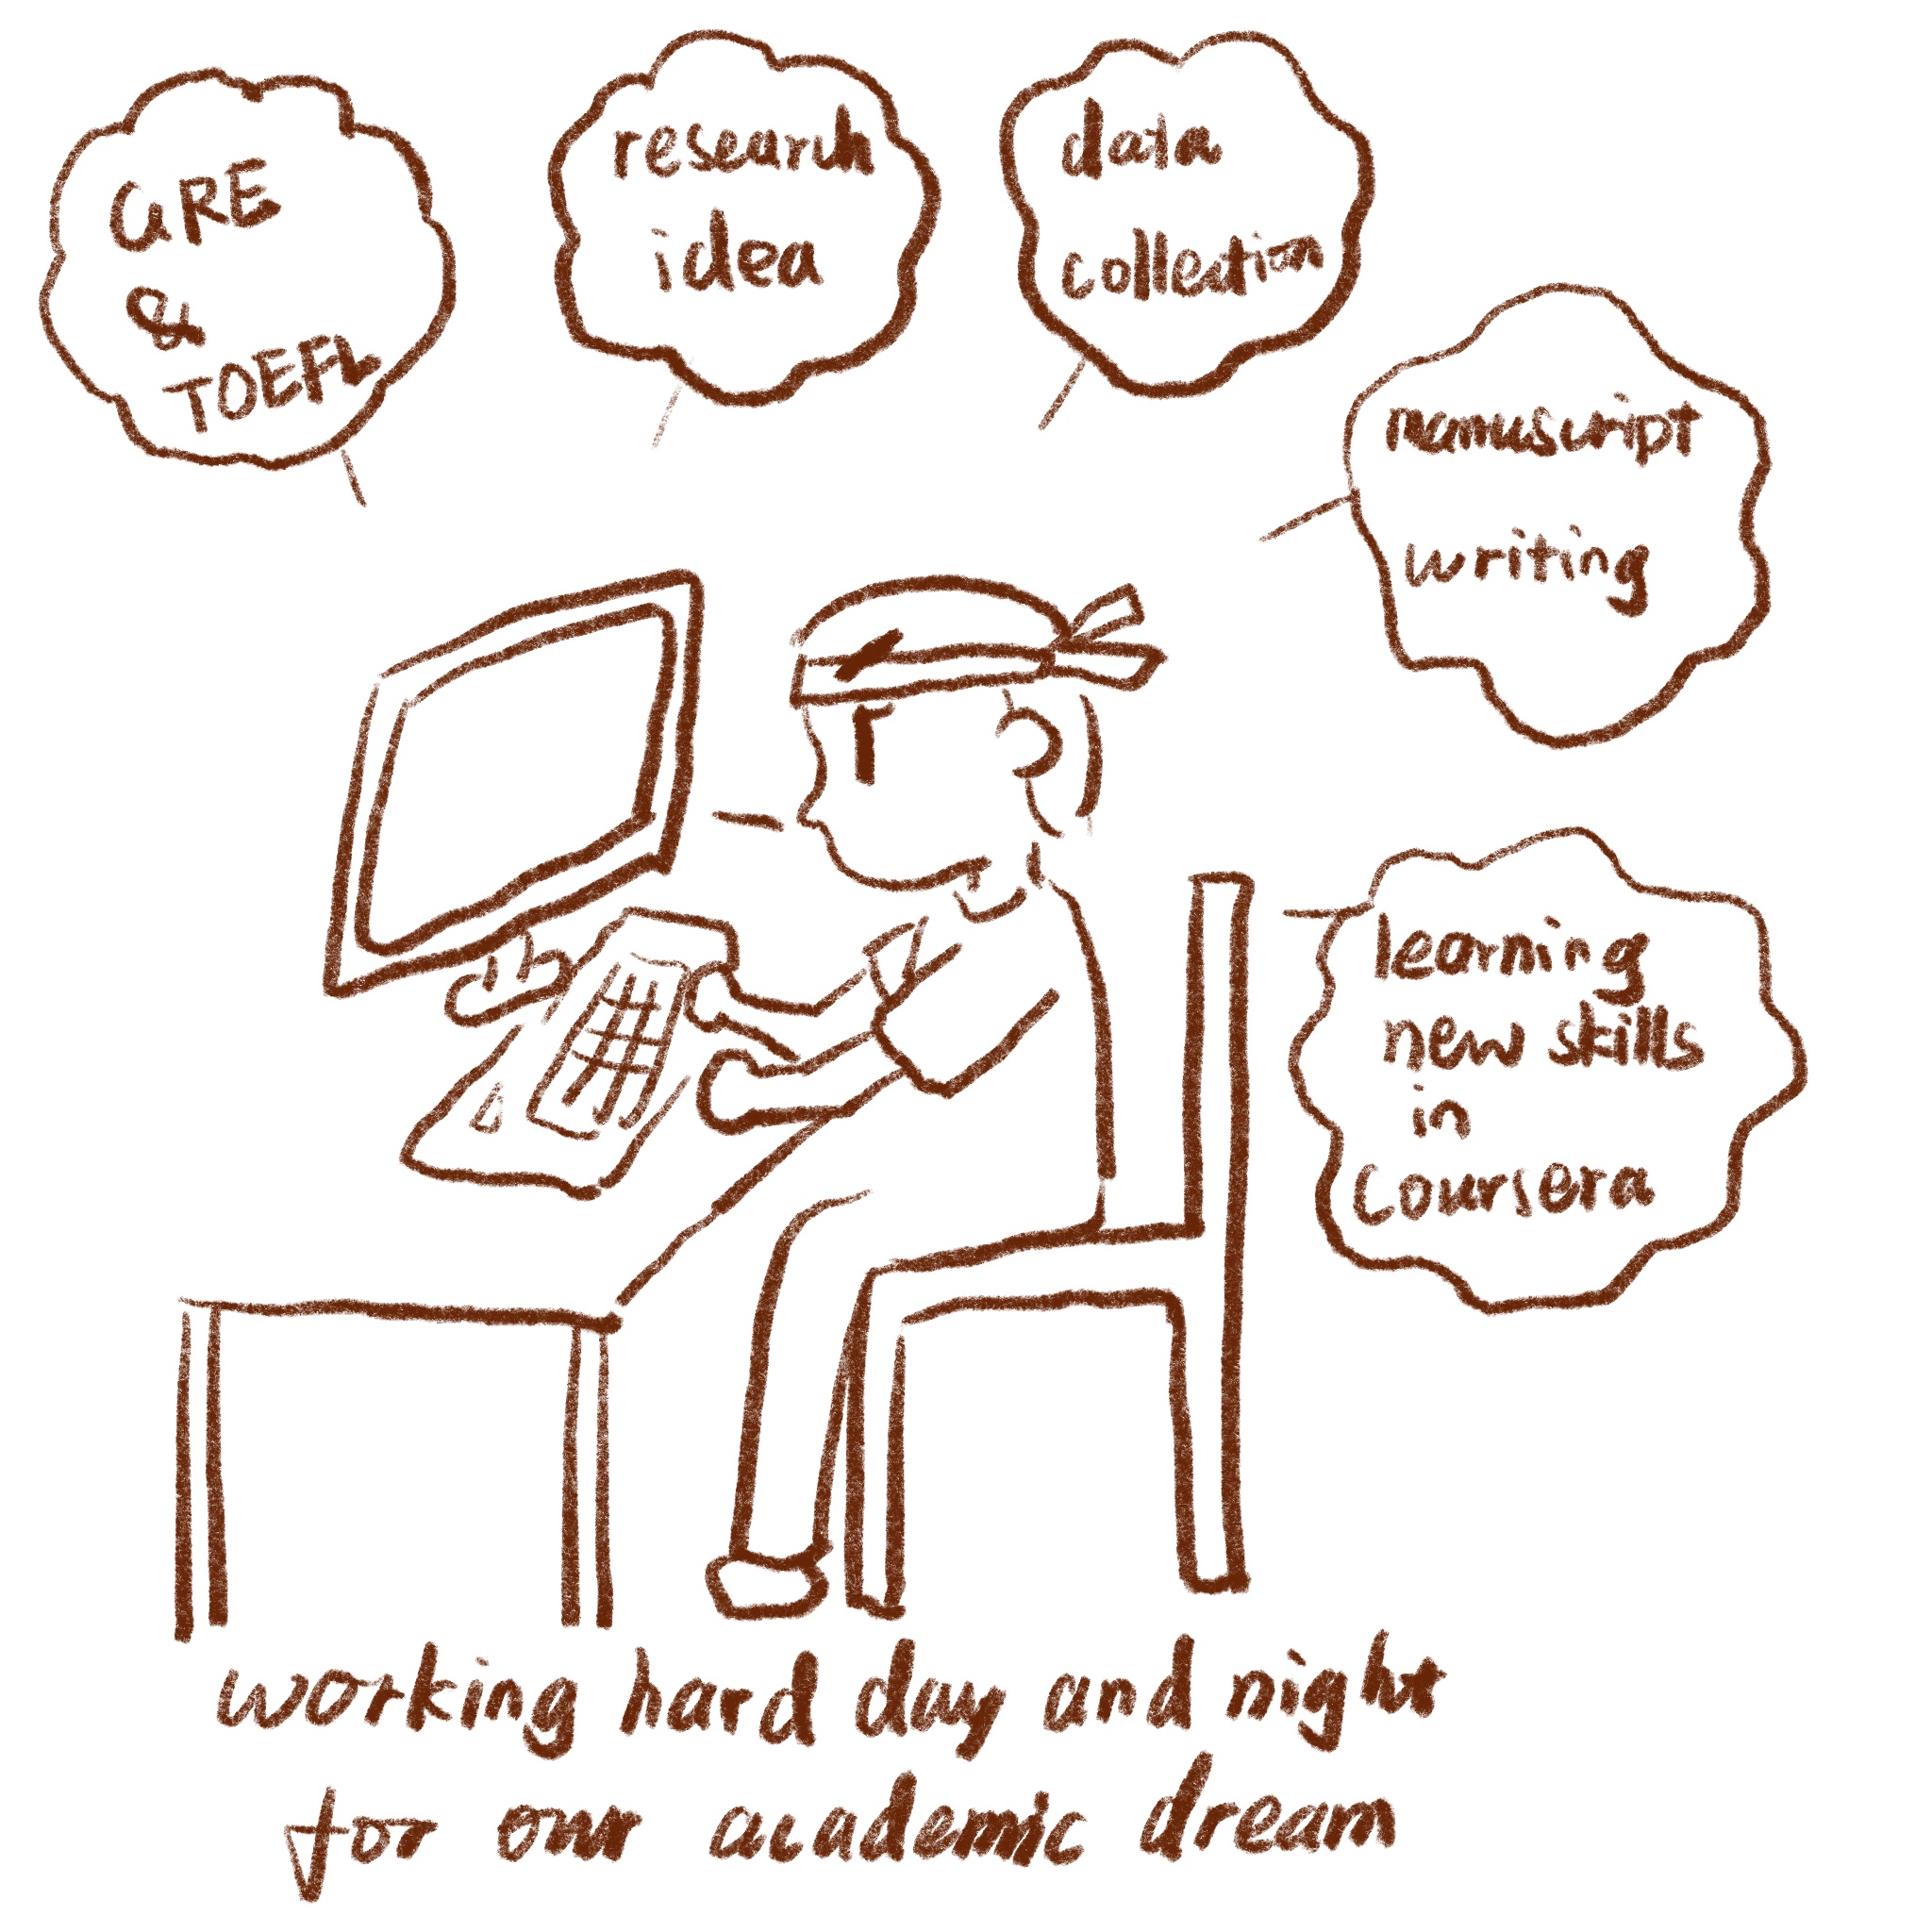 GRE
&
TOEFL
research
idea
data
collection
manuscript
writing
learning
new skills
in
coursera
working hard day and night
for our academic dream